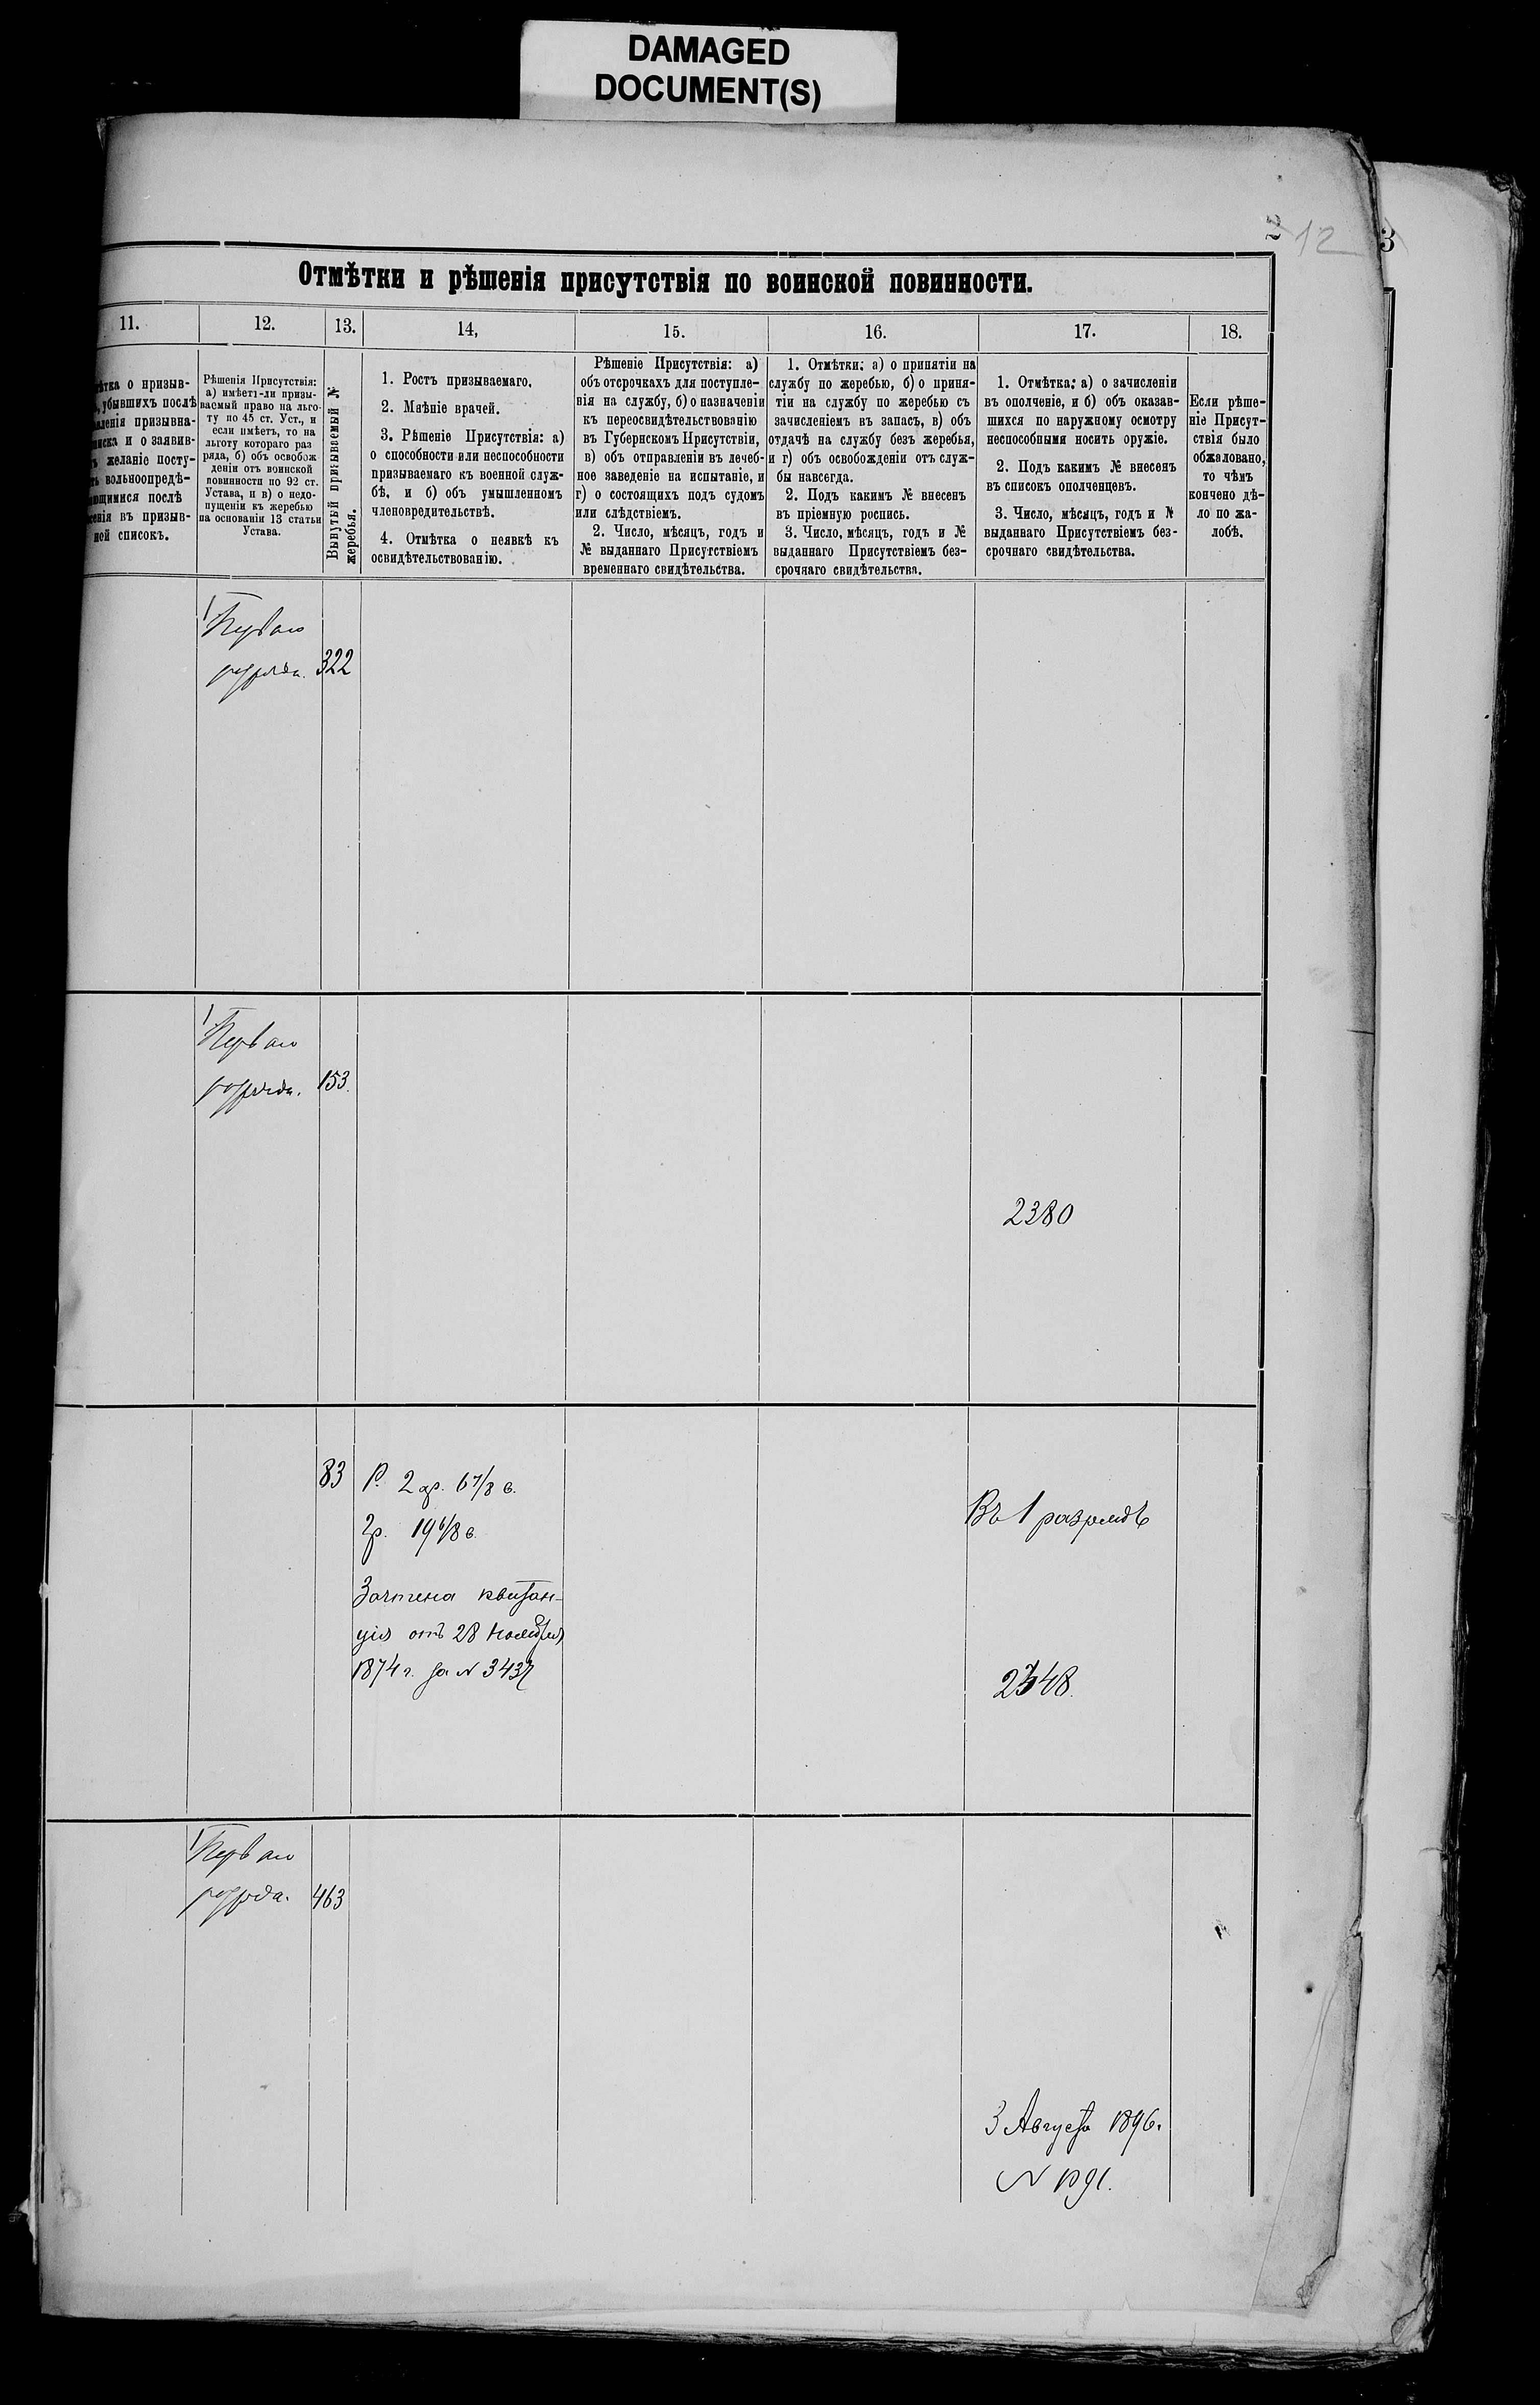 DAMAGED
DOCUMENT(S)
2
12
3
Отмѣтки и рѣшенія присутствія по воинской повинности.
11.
12.
13.
14.
15.
16.
17.
18.
о призыв-
убывшихъ послѣ
призывна-
и о заявив-
желаніе посту-
вольноопредѣ-
послѣ
въ призыв-
ной списокъ.
Рѣшенія Присутствія:
а) имѣетъ-ли призы-
ваемый право на льго-
ту по 45 ст. Уст., и
если имѣетъ, то на
льготу котораго раз
ряда, б) объ освобож
деніи отъ воинской
повинности по 92 ст.
Устава, и в) о недо-
пущеніи къ жеребью
на основаніи 13 статьи
Устава.
Вынутый призываемый №
жеребья.
1. Ростъ призываемаго.
2. Мнѣніе врачей.
3. Рѣшеніе Присутствія: а)
о способности или неспособности
призываемаго къ военной служ-
бѣ, и б) объ умышленномъ
членовредительствѣ.
4. Отмѣтка о неявкѣ къ
освидѣтельствованію.
Рѣшеніе Присутствія: а)
объ отсрочкахъ для поступле-
нія на службу, б) о назначеніи
къ переосвидѣтельствованію
въ Губернскомъ Присутствіи,
в) объ отправленіи въ лечеб-
ное заведеніе на испытаніе, и
г) о состоящихъ подъ судомъ
или слѣдствіемъ.
2. Число, мѣсяцъ, годъ и
№ выданнаго Присутствіемъ
временнаго свидѣтельства.
1. Отмѣтки: а) о принятіи на
службу по жеребью, б) о приня-
тіи на службу по жеребью съ
зачисленіемъ въ запасъ, в) объ
отдачѣ на службу безъ жеребья,
и г) объ освобожденіи отъ служ-
бы навсегда.
2. Подъ какимъ № внесенъ
въ пріемную роспись.
3. Число, мѣсяцъ, годъ и №
выданнаго Присутствіемъ без-
срочнаго свидѣтельства.
1. Отмѣтка: а) о зачисленіи
въ ополченіе, и б) объ оказав-
шихся по наружному осмотру
неспособными носить оружіе.
2. Подъ какимъ № внесенъ
въ списокъ ополченцевъ.
3. Число, мѣсяцъ, годъ и №
выданнаго Присутствіемъ без-
срочнаго свидѣтельства.
Если рѣше-
ніе Присут-
ствія было
обжаловано,
то чѣмъ
кончено дѣ-
ло по жа-
лобѣ.
Перваго
разряда. 322
Перваго
разряда. 153.
2380
83
Р. 2 ар. 6 7/8 в.
Гр. 19 6/8 в.
Зачтена квитан-
ція отъ 28 Ноября
1874 г. за № 3437
Въ 1 разрядѣ
Перваго
разряда. 463
3 Августа 1896 г.
№ 1391.